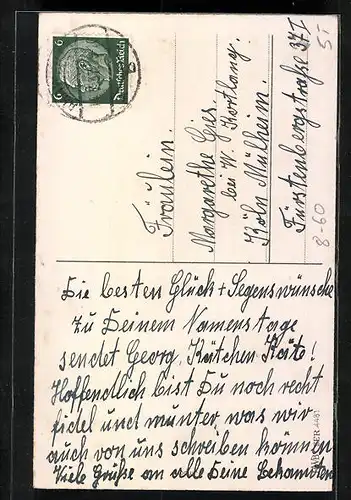 Die besten Glück + Segenswünsche
zu Deinem Namenstage
sendet Georg, Kätchen Käte!
Hoffentlich bist Du noch recht
fidel und munter, was wir
auch von uns schreiben können
Viele Grüße an alle Deine Bekannten
Fräulein.
Margarethe Gies.
bei W. Kortlang.
Köln Mülheim.
Fürstenbergstraße 37 I
5.-
8-60
6 6
Deutsches Reich